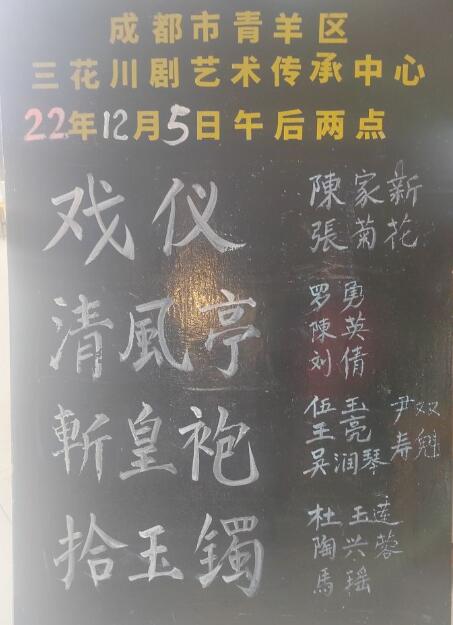 成都市青羊区
三花川剧艺术传承中心
22年12月5日午后两点
戏仪
陳家新
張菊花
清風亭
罗勇
陳英
刘倩
斬皇袍
伍玉 尹双
王亮
吴润琴 寿魁
拾玉镯
杜玉莲
陶兴蓉
馬瑶